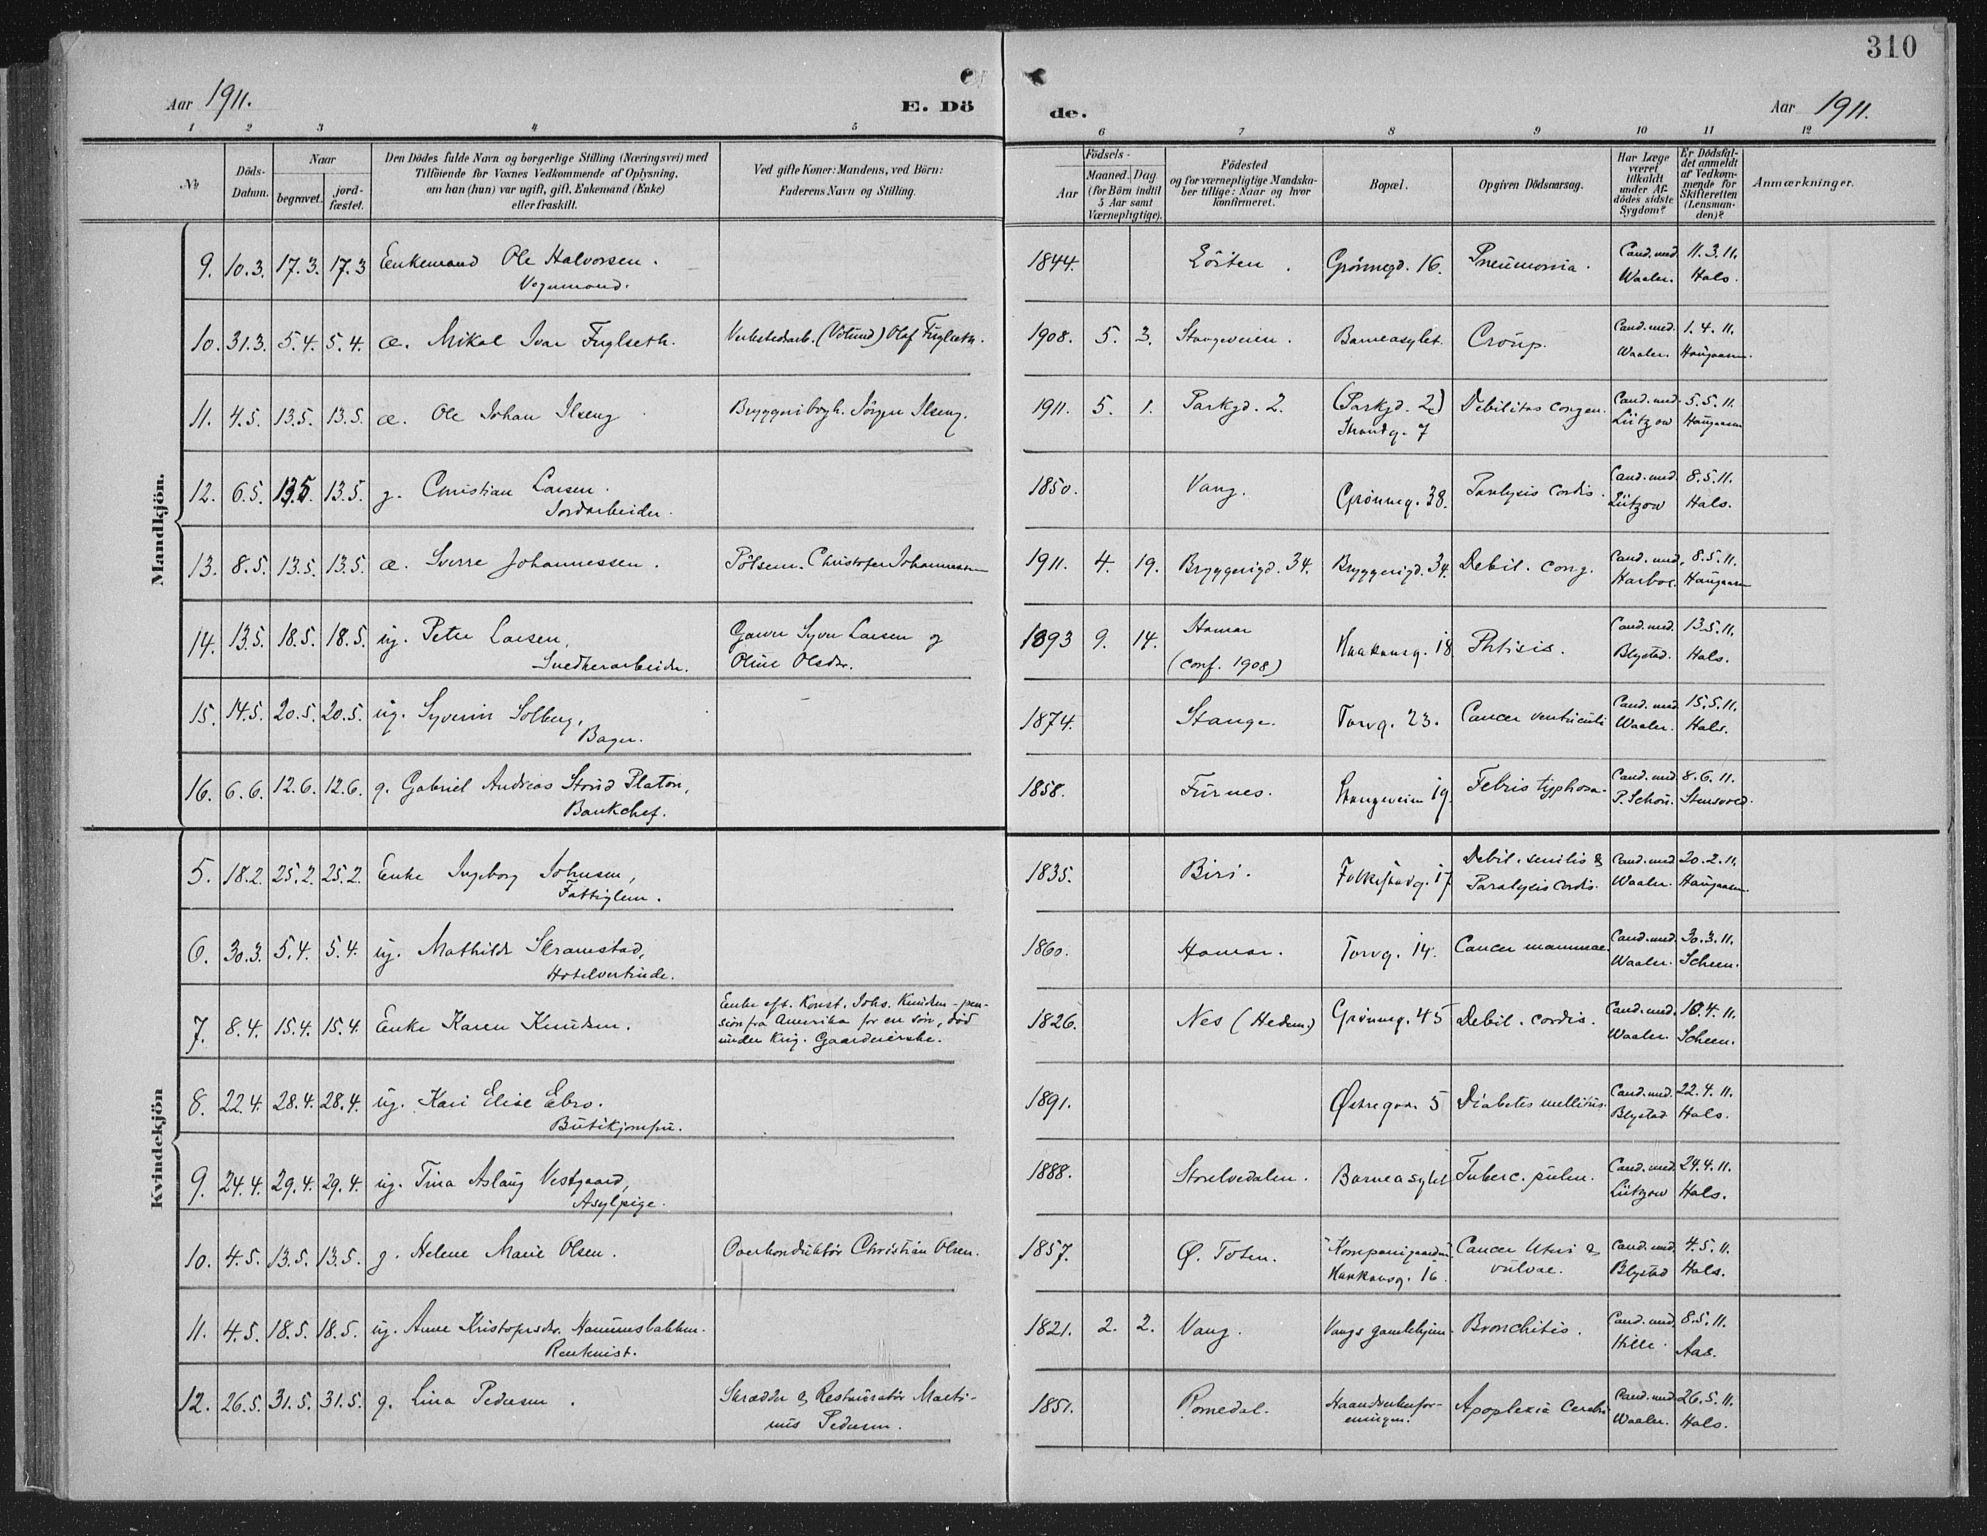 310
Aar 1911.
E. Dö
de.
Aar 1911.
1 2 3 4 5 6 7 8 9 10 11 12
№
Döds-
Datum.
Naar
begravet.
jord-
fæstet.
Den Dödes fulde Navn og borgerlige Stilling (Næringsvei) med
Tilföiende for Voxnes Vedkommende af Oplysning,
om han (hun) var ugift, gift, Enkemand (Enke)
eller fraskilt.
Ved gifte Koner: Mandens, ved Börn:
Faderens Navn og Stilling.
Födsels-
Aar
Maaned. Dag
(for Börn indtil
5 Aar samt
Værnepligtige).
Födested
og for værnepligtige Mandska-
ber tillige: Naar og hvor
konfirmeret.
Bopæl.
Opgiven Dödsaarsag.
Har Læge
været
tilkaldt
under Af-
dödes sidste
Sygdom?
Er Dödsfal-
det anmeldt
af Vedkom-
mende for
Skifteretten
(Lensman-
den)?
Anmærkninger.
Mandkjön.
9. 10.3. 17.3. 17.3 Enkemand Ole Halvorsen. 1844. Löiten. Grönnegd. 16. Pneumonia. Cand. med 11.3.11.
Vognmand. Waaler. Hals.
10. 31.3. 5.4. 5.4. æ. Mikal Ivar Fuglseth. Verkstedarb. (Völund) Olaf Fuglseth. 1908. 5. 3. Stangeveien. Barneasylet. Croup. Cand. med. 1.4.11.
Waaler. Haugaasen.
11. 4.5. 13.5. 13.5. æ. Ole Johan Ilseng Bryggeribogh. Jörgen Ilseng. 1911. 5. 1. Parkgd. 2. (Parkgd. 2) Debilitas congen. Cand. med 5.5.11.
Strandg. 7 Lützow Haugaasen
12. 6.5. 13.5. 13.5. g. Christian Larsen. 1850. Vang. Grönneg. 38. Paralysis cordis. Cand. med. 8.5.11.
Jordarbeider. Lützow Hals.
13. 8.5. 13.5. 13.5. æ. Sverre Johannessen. Pölsem. Christofer Johannessen 1911. 4. 19. Bryggerigd. 34. Bryggerigd. 34. Debil. cong. Cand. med. 8.5.11.
Harboe. Haugaasen
14. 13.5. 18.5. 18.5. ug. Peter Larsen, Garver Syver Larsen og 1893 9. 14. Hamar Haakonsg. 18 Phtisis. Cand. med. 13.5.11.
Snedkerarbeider. Oline Olsdr. (conf. 1908) Blystad. Hals.
15. 14.5. 20.5. 20.5. ug. Syverin Solberg, 1874. Stange. Torvg. 23. Cancer ventriculi Cand. med 15.5.11.
Bager. Waaler. Hals.
16. 6.6. 12.6. 12.6. g. Gabriel Andreas Storud Platou, 1858. Furnes. Stangeveien 19. Febris typhosa. Cand. med 8.6.11.
Bankchef. P. Schou. Stensvold.
Kvindekjön
5. 18.2. 25.2. 25.2. Enke Ingeborg Johnsen, 1835. Biri. Folkestadg. 17 Debil. senilis & Cand. med 20.2.11.
Fattiglem. Paralysis cordis. Waaler. Haugaasen.
6. 30.3. 5.4. 5.4. ug. Mathilde Skramstad, 1860. Hamar. Torvg. 14. Cancer mammae. Cand. med. 30.3.11.
Hotelvertinde. Waaler. Scheen.
7. 8.4. 15.4. 15.4. Enke Karen Knudsen. Enke eft. Konst. Johs. Knudsen - pen-
sion fra Amerika for en sön, död
under krig. Gaardeierske. 1826. Nes (Hedem.) Grönneg. 45 Debil. cordis. Cand. med. 10.4.11.
Waaler. Scheen.
8. 22.4. 28.4. 28.4. ug. Kari Elise Ebro. 1891. Østregad. 5 Diabetes mellitus. Cand. med. 22.4.11.
Butikjomfru. Blystad Hals.
9. 24.4. 29.4. 29.4. ug. Tina Aslaug Vestgaard, 1888. Storelvedalen. Barneasylet Tuberc. pulm. Cand. med. 24.4.11.
Asylpige. Lützow Hals.
10. 4.5. 13.5. 13.5. g. Helene Marie Olsen. Overkonduktör Christian Olsen. 1857. Ø. Toten. "Kompanigaarden" Cancer Uteri & Cand. med. 4.5.11.
Haakonsg. 16. vulvae. Blystad Hals.
11. 4.5. 18.5. 18.5. ug. Anne Kristofersdr. Hammesbakken. 1821. 2. 2. Vang. Vangs gamlehjem. Bronchitis. Cand. med. 8.5.11.
Rentenist. Hille. Aas.
12. 26.5. 31.5. 31.5. g. Lina Pedersen. Skrædder & Restauratör Marti- 1851. Romedal. Haandverkerfor- Apoplexia Cerebri Cand. med 26.5.11.
nus Pedersen. eningen. Waaler. Hals.